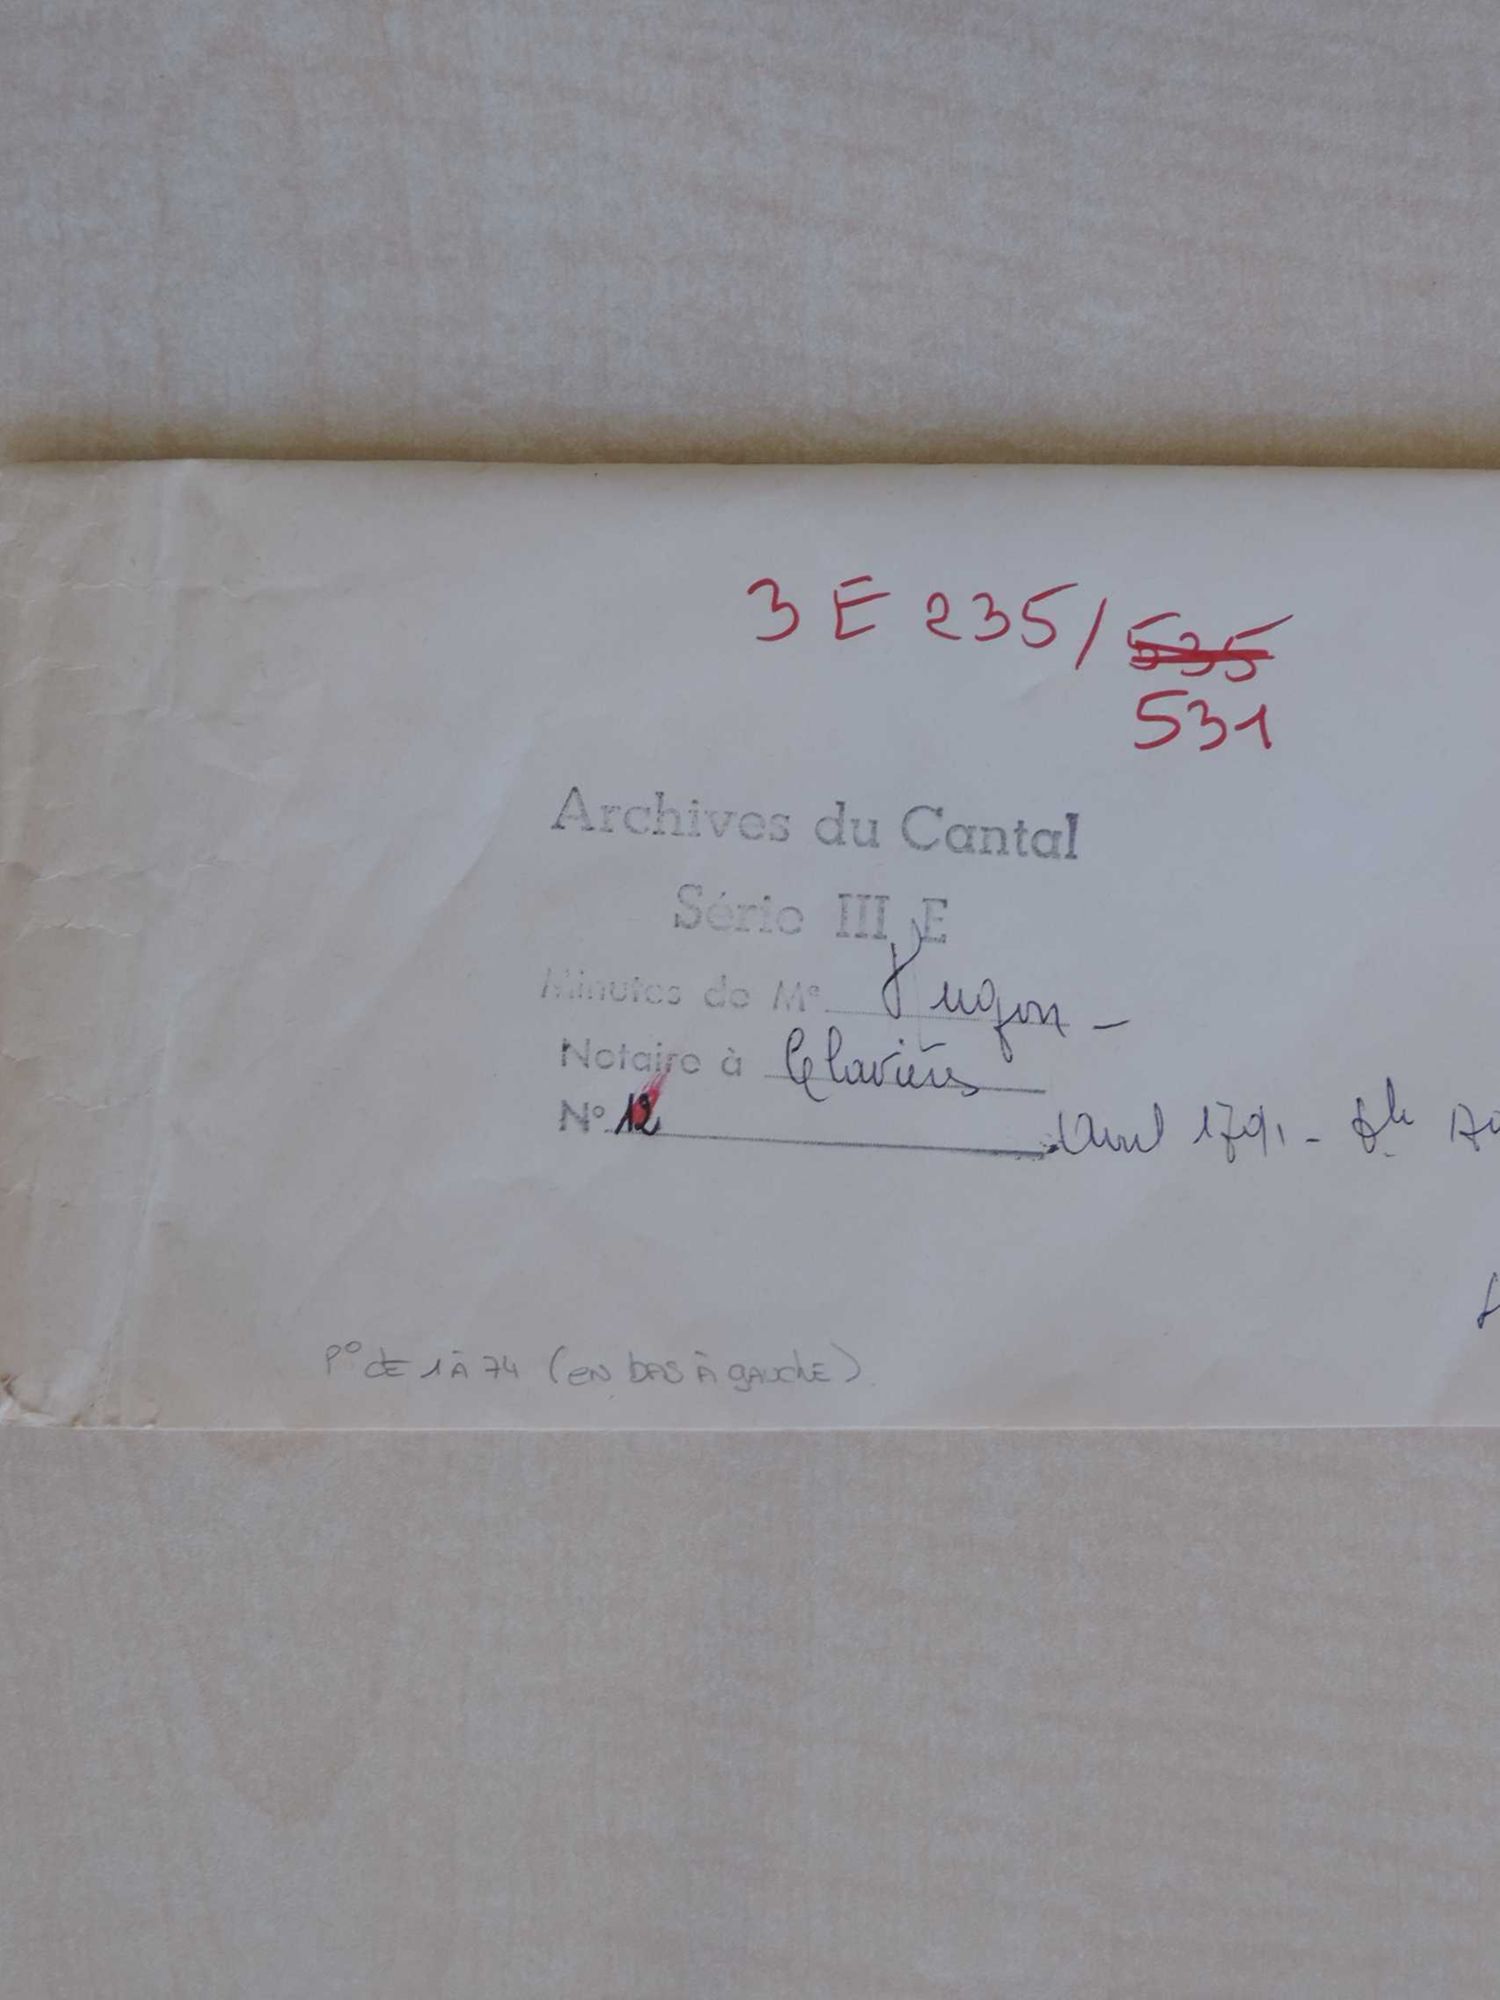 3 E 235/ 535
531
Archives du Cantal
Série III E
Minutes de Me Pugon -
Notaire à Clavières
No 12 Avril 1791 -
Po de 1 à 74 (en bas à gauche)